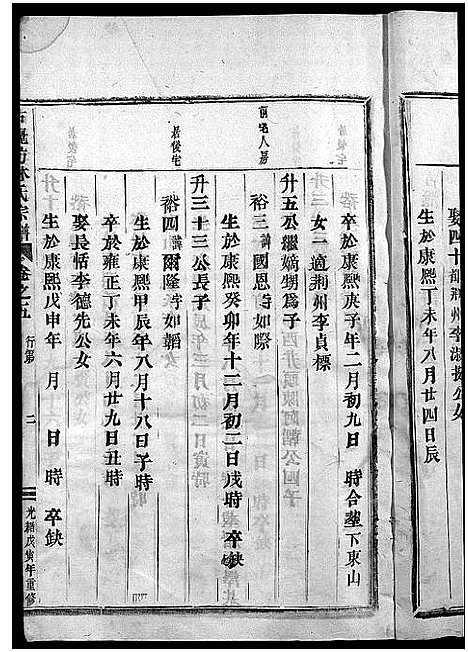 娶四十都荆州李淑援公女
生於康熙丁未年八月廿四日辰
卒於康熙庚子年二月初九日 時合塋下東山
女一適荆州李貞標
升五公繼嫡甥爲子
裕三諱國恩號如際
生於康熙癸卯年十二月初二日戌時 卒缺
升三十三公長子
裕四諱爾隆號如韜
生於康熙甲辰年八月十八日子時
卒於雍正丁未年六月廿九日丑時
娶長恬李德先公女
生於康熙戊申年 月 日 時 卒缺
居後宅
林氏宗譜 卷之五 行第 二 光緒戊寅年重修